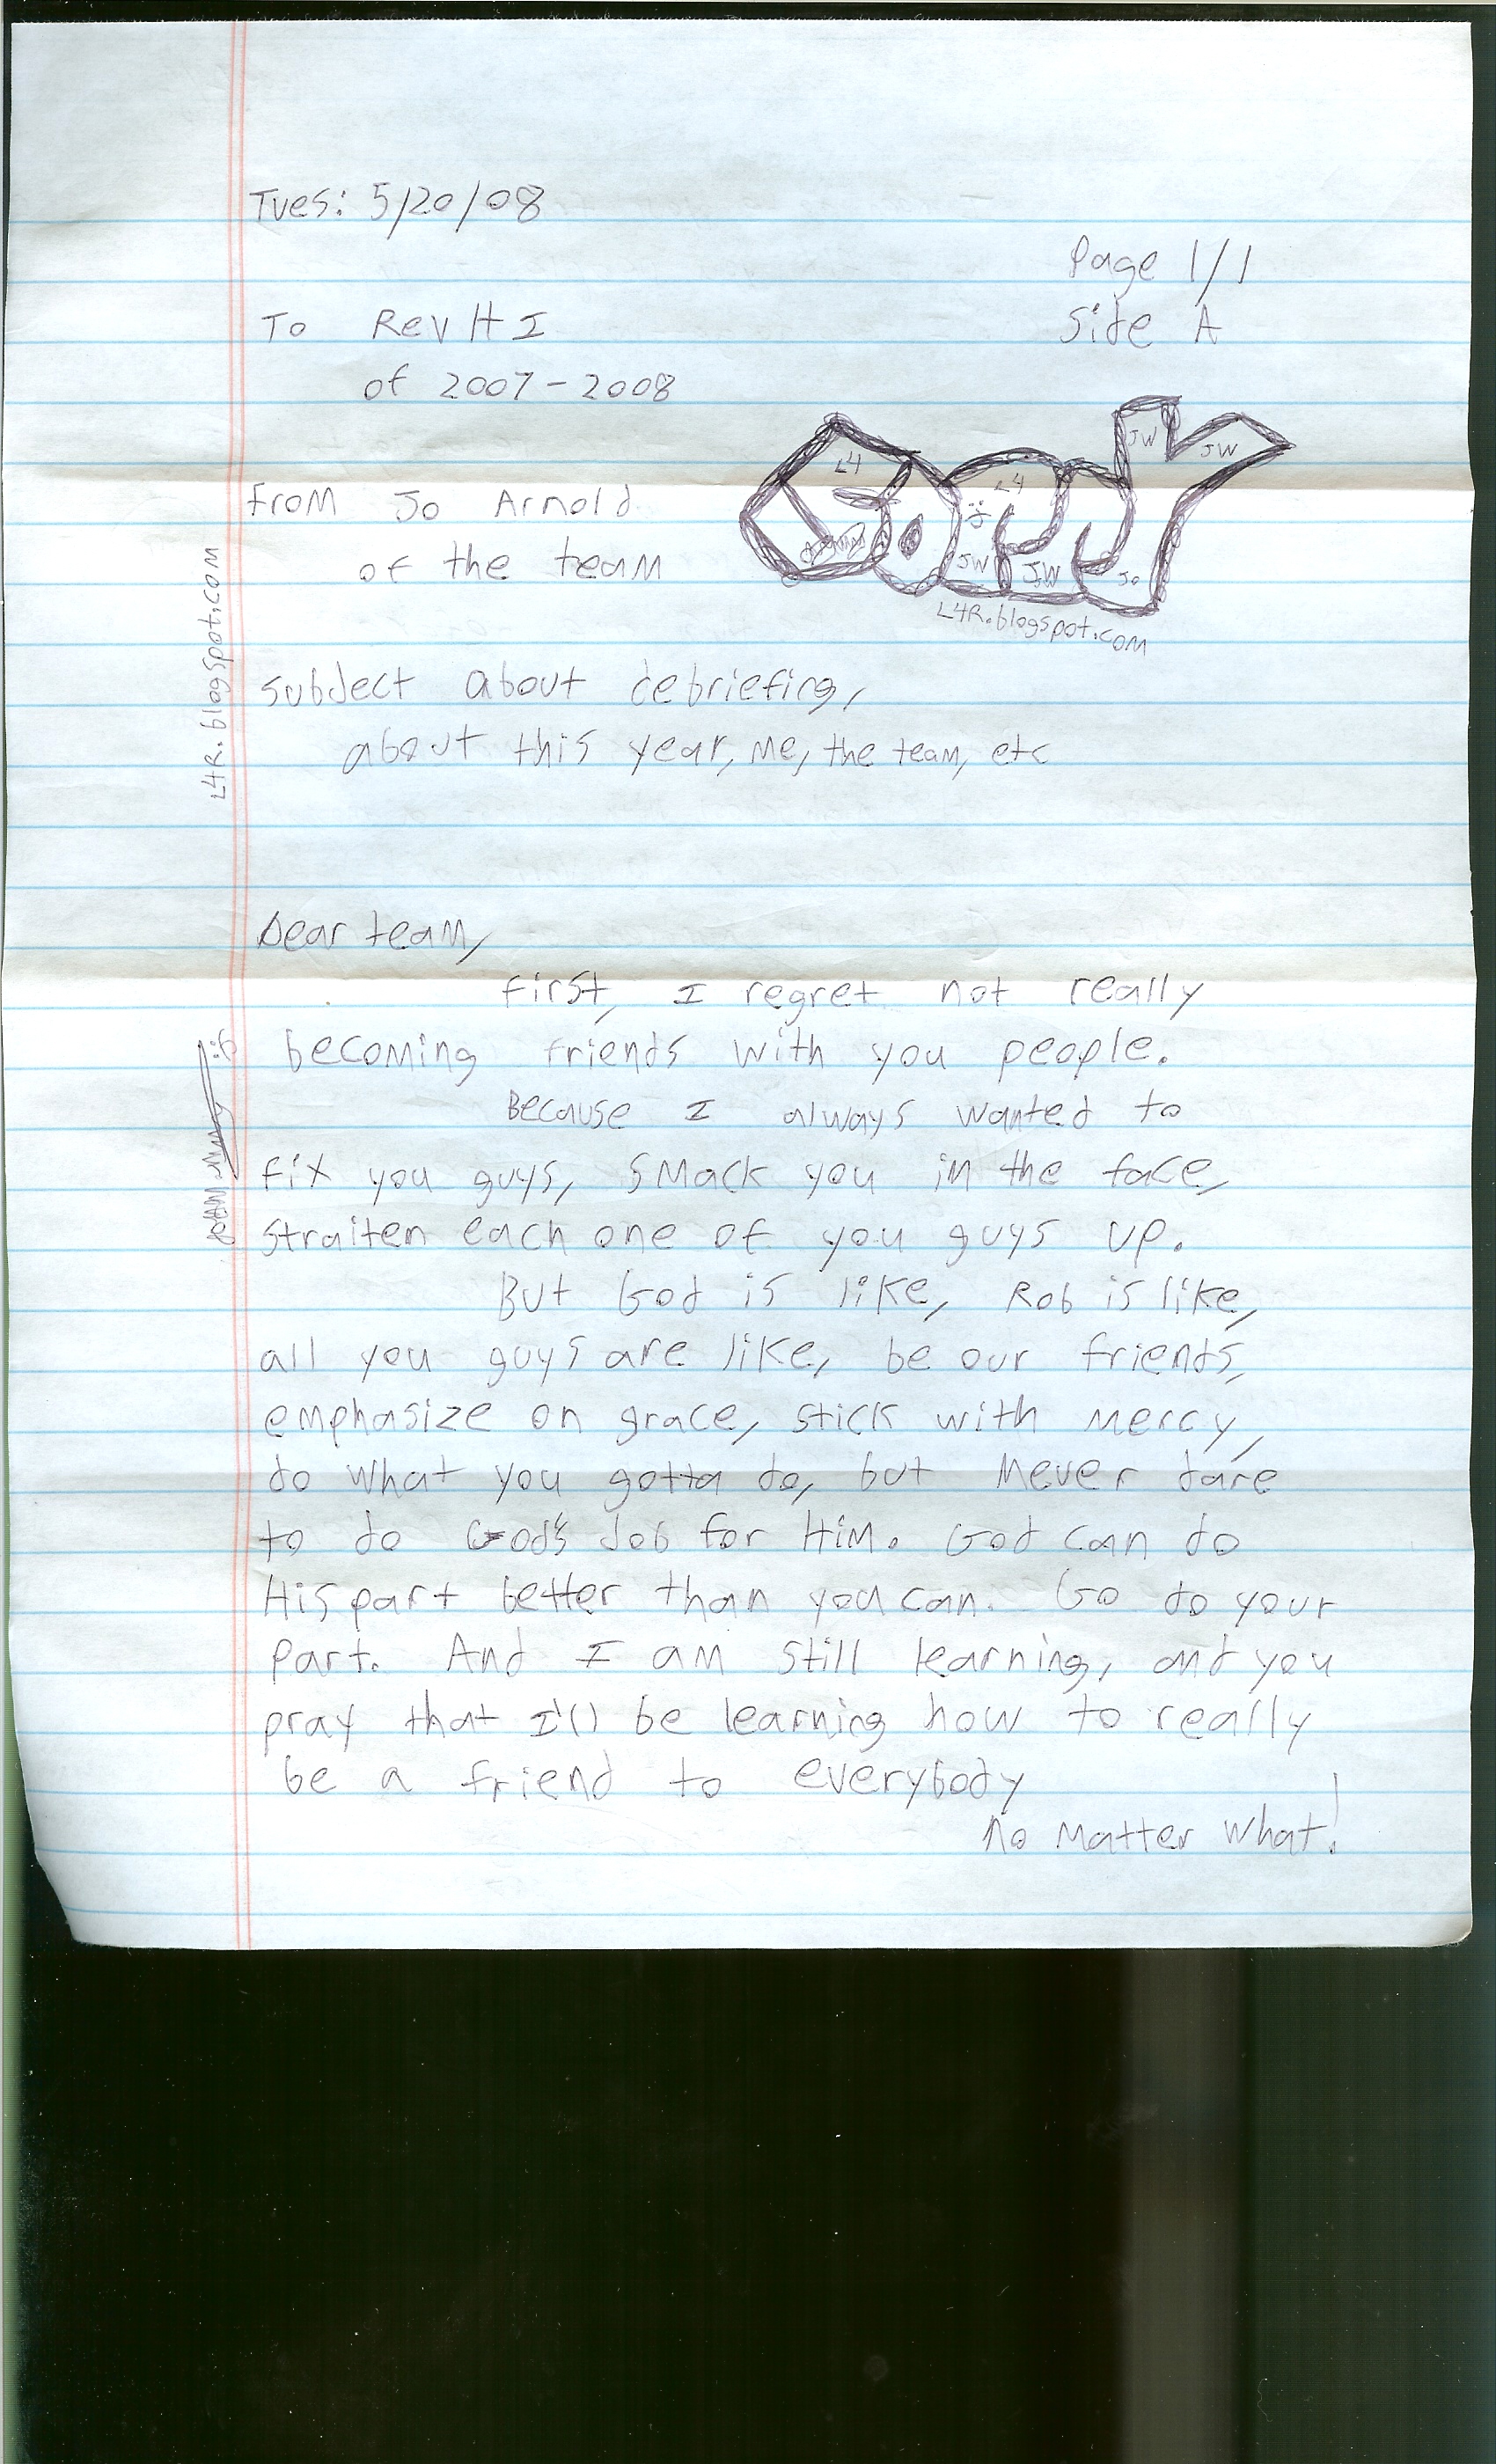 Tues: 5/20/08
Page 1/1
Side A
To Rev HI
of 2007-2008
From Jo Arnold
of the team
L4
L4
JW
JW
JW
JW
Jo
L4R.blogspot.com
L4R.blogspot.com
Subject about debriefing,
about this year, me, the team, etc
Dear team,
First, I regret not really
becoming friends with you people.
Because I always wanted to
fix you guys, smack you in the face,
straiten each one of you guys up.
But God is like, Rob is like,
all you guys are like, be our friends,
emphasize on grace, stick with mercy,
do what you gotta do, but never dare
to do God's Job for Him. God can do
His part better than you can. Go do your
part. And I am still learning, and you
pray that I'll be learning how to really
be a friend to everybody
No Matter What!